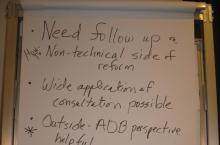 • Need follow up
Non-technical side of
reform
• Wide application of
consultation possible
* • Outside-ADB perspective
helpful